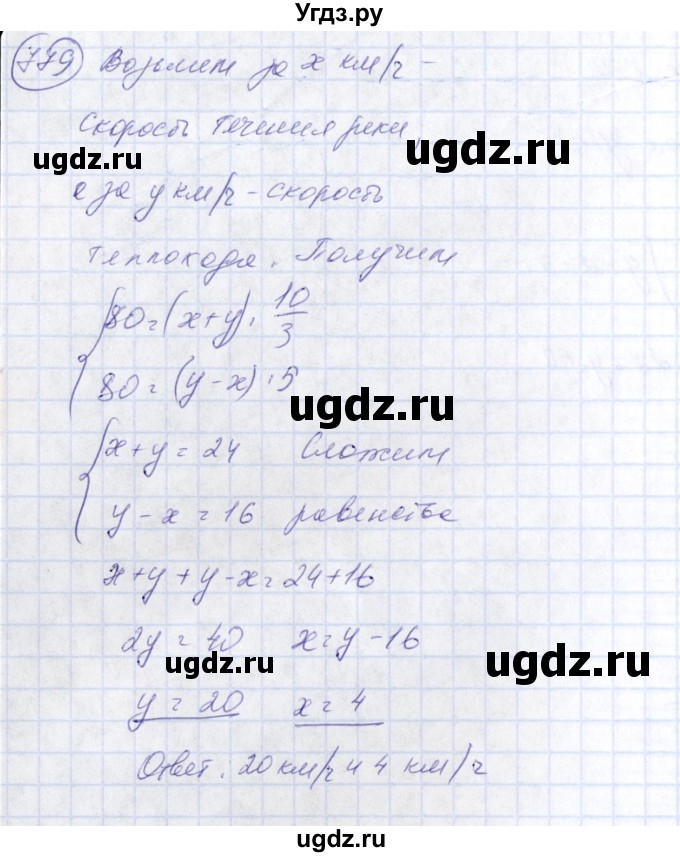 Угдз.ру
779 Возьмем за x км/ч –
скорость течения реки,
ugdz.ru
а за y км/ч - скорость
ugdz.ru
теплохода. Получим
80 = (x+y) · 10/3
80 = (y-x) · 5
ugdz.ru
x+y = 24 Сложим
y-x = 16 равенства
x+y+y-x=24+16
2y = 40 x=y-16
ugdz.ru ugdz.ru
y = 20 x = 4
Ответ: 20 км/ч и 4 км/ч
ugdz.ru